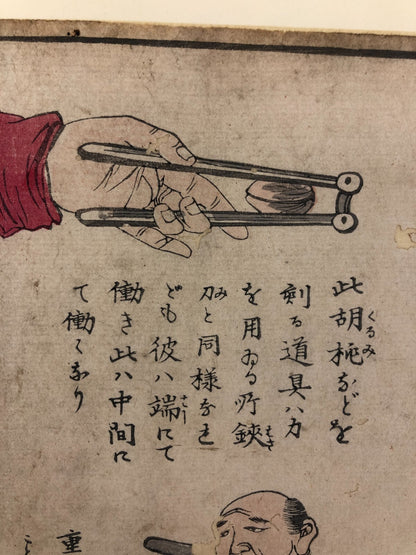 此胡桃などを
くるみ
割る道具ハ力
を用ゐる所鋏
はさ
刀と同様なれ
み
ども彼ハ端にて
はし
働き此ハ中間に
て働くなり
重